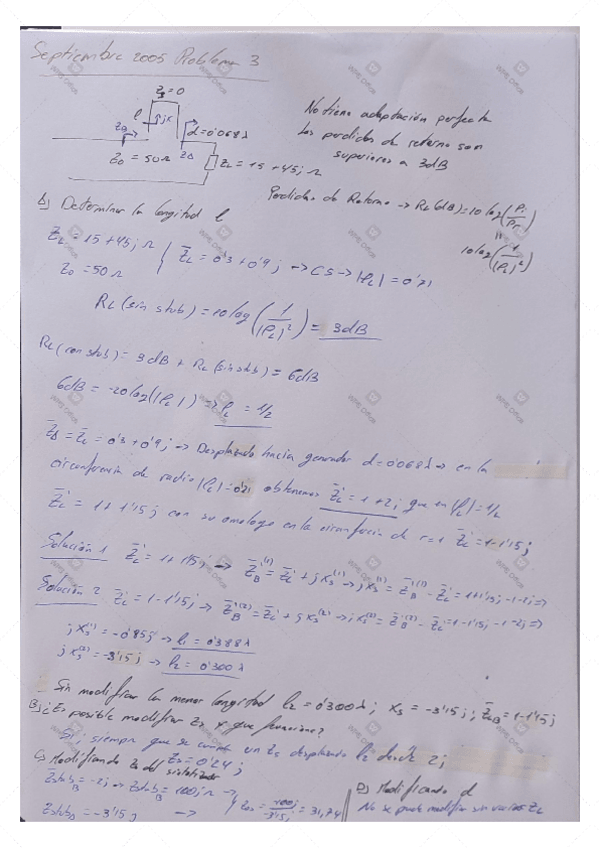 Septiembre 2005 Problema 3
Zs=0
l
jX
d=0'068λ
Z0 = 50Ω
ZL = 15 + 45j Ω
No tiene adaptación perfecta
Las perdidas de retorno son
superiores a 3dB
Perdidas de Retorno -> RL(dB)=10log(Pi/Pr)
"
10log(1/|ρL|²)
b) Determinar la longitud l
ZL = 15 + 45j Ω
Z0 = 50Ω
Z̄L = 0'3 + 0'9j -> CS -> |ρL| = 0'71
RL(sin stub) = 10log(1/|ρL|²) = 3dB
RL(con stub) = 3dB + RL(sin stub) = 6dB
6dB = -20log(|ρL|) -> ρL = 1/2
Z̄L = 0'3 + 0'9j -> Desplazado hacia generador d=0'068λ -> en la
circunferencia de radio |ρL|=0'71 obtenemos Z̄L' = 1 + 2j que en |ρL|=1/2
Z̄L' = 1 + 1'15j con su omologo en la circunferencia de r=1 Z̄L'=1-1'15j
Solución 1 Z̄L' = 1 + 1'15j -> Z̄B(1) = Z̄L' + jXs(1) -> jXs(1) = Z̄B(1) - Z̄L' = 1+1'15j-1-2j =>
Solución 2 Z̄L' = 1 - 1'15j -> Z̄B(2) = Z̄L' + jXs(2) -> jXs(2) = Z̄B(2) - Z̄L' = 1-1'15j-1-2j =>
jXs(1) = -0'85j -> l1 = 0'388λ
jXs(2) = -3'15j -> l2 = 0'300λ
Sin modificar la menor longitud l2 = 0'300λ; Xs = -3'15j; Z̄B = 1-1'15j
B) ¿Es posible modificar Zs y que funcione?
Si, siempre que se un Zs desplazado l2 desde 2j
Zs = 0'24j
c) Modificando Z0 del
Zstub B = -2j -> Zstub B = 100j Ω ->
Zstub B = -3'15j ->
Z0s = 100j/-3'15j = 31,74
e) Modificando d
No se puede modificar sin variar ZL